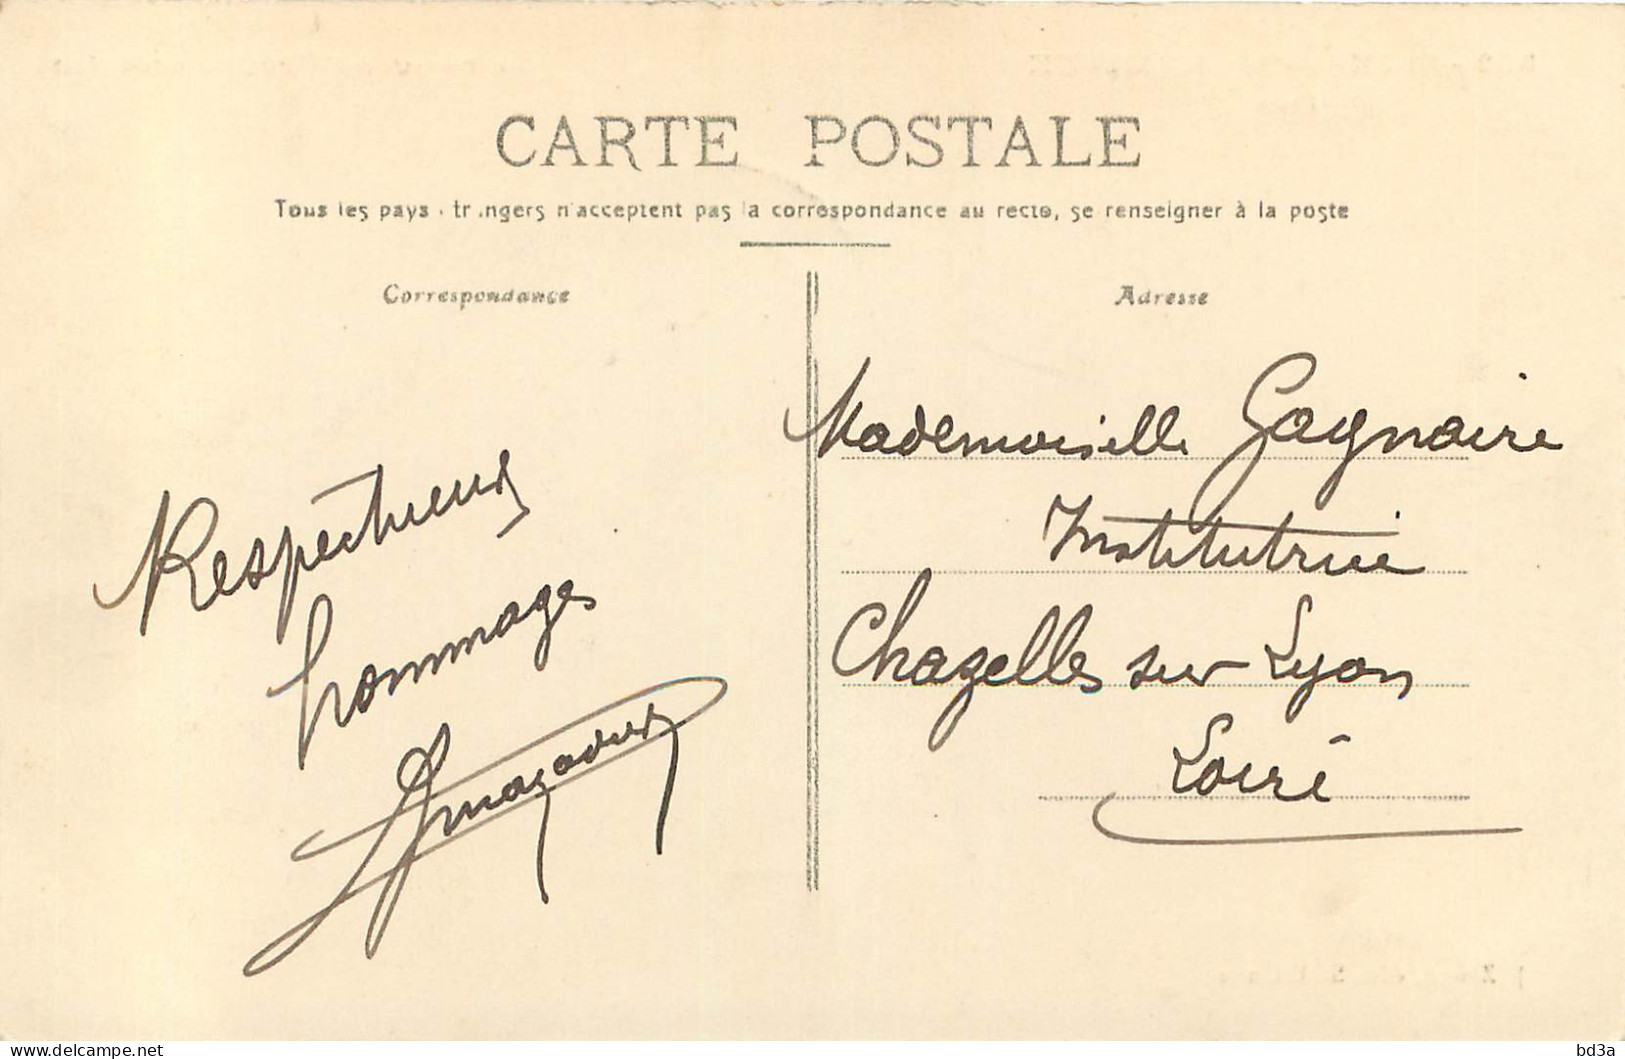 CARTE POSTALE
Tous les pays étrangers n'acceptent pas la correspondance au recto, se renseigner à la poste
Correspondance
Adresse
Respectueux
hommages
Mademoiselle Gagnaire
Institutrice
Chazelles sur Lyon
Loire
www.delcampe.net
bd3a